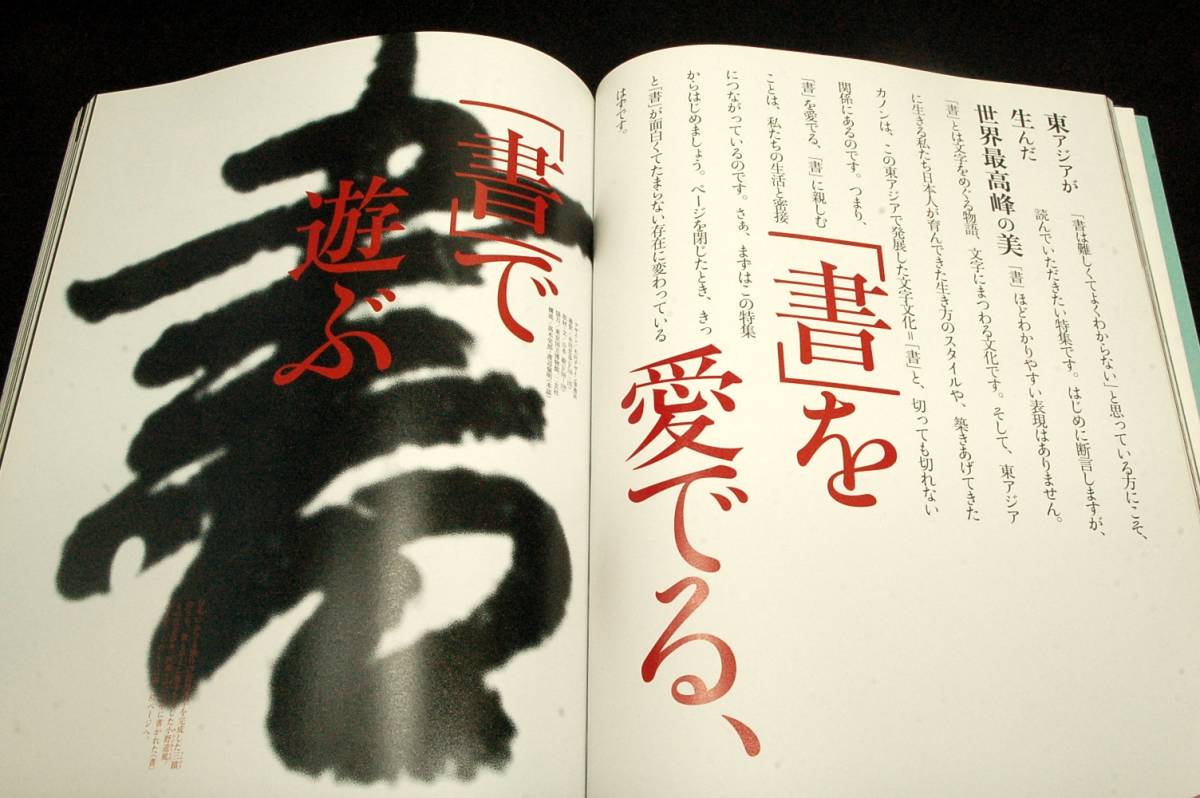 東アジアが
生んだ
世界最高峰の美
「書は難しくてよくわからない」と思っている方にこそ、
読んでいただきたい特集です。はじめに断言しますが、
「書」ほどわかりやすい表現はありません。
「書」とは文字をめぐる物語、文字にまつわる文化です。そして、東アジア
に生きる私たち日本人が育んできた生き方のスタイルや、築きあげてきた
カノンは、この東アジアで発展した文字文化=「書」と、切っても切れない
関係にあるのです。つまり、
「書」を愛でる、「書」に親しむ
ことは、私たちの生活と密接
につながっているのです。さぁ、まずはこの特集
からはじめましょう。ページを閉じたとき、きっ
と「書」が面白くてたまらない存在に変わっている
はずです。
「書」を
愛でる、
「書」で
遊ぶ
書